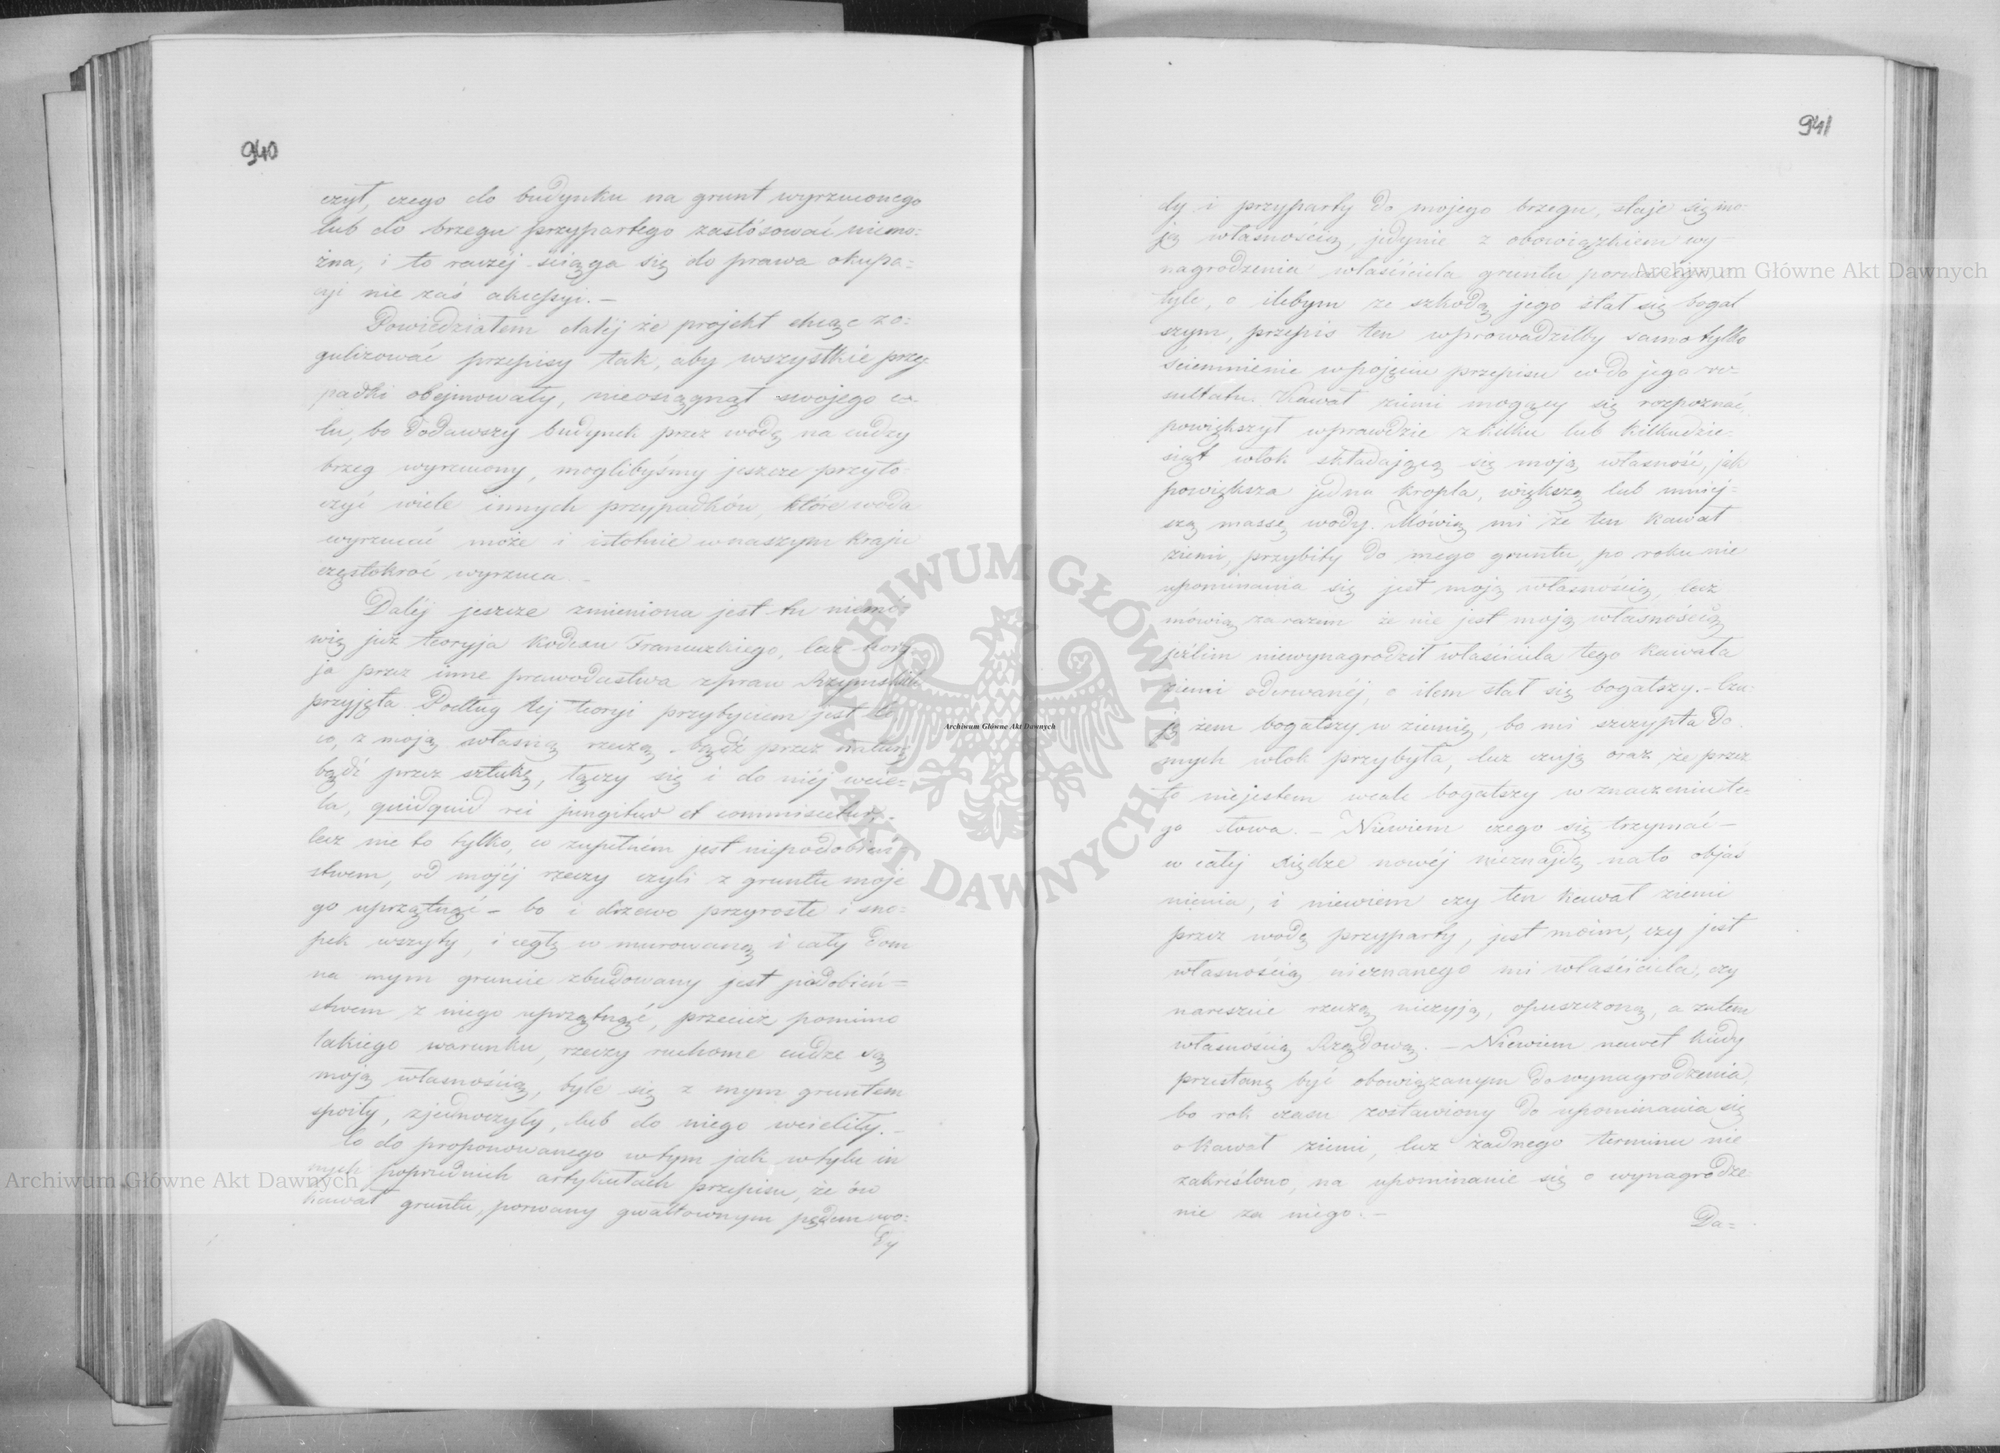 940
czył, czego do budynku na grunt wyrzuconego
lub do brzegu przypartego zastósować niemo=
żna, i to raczéj ściąga się do prawa okupa=
cyi nie zaś akcessyi. —
Powiedziałem daléj że projekt chcąc
gulizować przepisy tak, aby wszystkie przy
padki obéjmowały, nieosiągnął swojego ce=
lu, bo dodawszy budynek przez wodę na cudzy
brzeg wyrzucony, moglibyśmy jeszcze przyto=
czyć wiele innych przypadków, które woda
wyrzucać może i istotnie w naszym kraju
częstokroć wyrzuca. —
Daléj jeszcze zmieniona jest tu niemó=
wię już teoryja kodexu Francuzkiego, lecz teory
ja przez inne prawodastwa z praw Rzymskich
przyjęta. Podług tej teoryi przybyciem jest to
co, z moją własną rzeczą, bądź przez naturę
bądź przez sztukę, łączy się i do niéj wcie=
la, quidquid rei jungitur et commiscetur, —
lecz nie to tylko, co zupełném jest niepodobień=
stwem, od mojéj rzeczy czyli z gruntu moje
go uprzątnąć — bo i drzewo przyrosłe i sno=
pek wszyty, i cegłę w murowaną i cały dom
na mym gruncie zbudowany jest podobień=
stwem z niego uprzątnąć, przecież pomimo
takiego warunku, rzeczy ruchome cudze są
moją własnością, byle się z mym gruntem
spoiły, zjednoczyły, lub do niego wcieliły. —
Co do proponowanego w tym jak w tylu in
nych poprzednich artykułach przepisu, że ów
kawał gruntu, porwany gwałtownym pędem wo=
dy
941
dy i przyparty do mojego brzegu, staje się mo=
ją własnością, jedynie z obowiązkiem wy—
nagrodzenia właściciela gruntu porwanego
tyle, o ilebym ze szkodą jego stał się bogat
szym, przepis ten wprowadziłby samo tylko
sciemnienie w pojęciu przepisu co do jego re=
sultatu. Kawał ziemi mogący się rozpoznać,
powiększył wprawdzie z kilku lub kilkudzie=
siąt włok składającą się moją własność, jak
powiększa jedna kropla, większą lub mniéj=
szą massę wody. Mówią mi że ten kawał
ziemi, przybity do mego gruntu, po roku nie
upominania się jest moją własnością, lecz
mówią zarazem że nie jest moją własnością
jeżlim niewynagrodził właściciela tego kawała
ziemi oderwanéj, o ilem stał się bogatszy. — Czu=
ję żem bogatszy w ziemię, bo mi szczypta do
mych włok przybyła, lecz czuję oraz że przez
to niejestem wcale bogatszy w znaczeniu te=
go słowa. — Niewiem czego się trzymać —
w całej księdze nowéj nieznajdę na to objaś
nienia, i niewiem czy ten kawał ziemi
przez wodę przyparty, jest moim, czy jest
własnością nieznanego mi właściciela, czy
nareszcie rzeczą niczyją, opuszczoną, a zatem
własnością Rządową. — Niewiem nawet kiedy
przestanę być obowiązanym do wynagrodzenia,
bo rok czasu zostawiony do upominania się
o kawał ziemi, lecz żadnego terminu nie
zakréślono, na upominanie się o wynagrodze=
nie za niego. —
Da=
Archiwum Główne Akt Dawnych
Archiwum Główne Akt Dawnych
Archiwum Główne Akt Dawnych
ARCHIWUM GŁÓWNE
AKT DAWNYCH